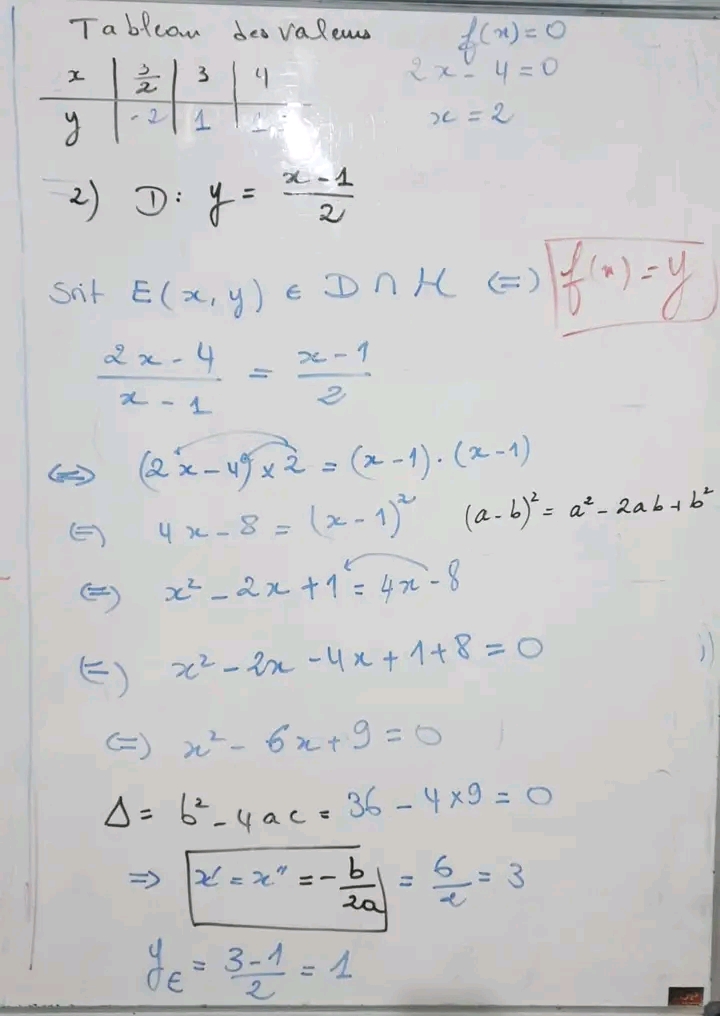 Tableau des valeurs
f(x) = 0
x | 3/2 | 3 | 4
2x - 4 = 0
y | -2 | 1 |
x = 2
2) D: y = (x - 1)/2
Soit E(x, y) ∈ D ∩ H (=) f(x) = y
(2x - 4)/(x - 1) = (x - 1)/2
(=) (2x - 4) × 2 = (x - 1) · (x - 1)
(=) 4x - 8 = (x - 1)²
(a - b)² = a² - 2ab + b²
(=) x² - 2x + 1 = 4x - 8
(=) x² - 2x - 4x + 1 + 8 = 0
(=) x² - 6x + 9 = 0
Δ = b² - 4ac = 36 - 4×9 = 0
=> x' = x'' = -b/2a = 6/2 = 3
y_E = (3 - 1)/2 = 1